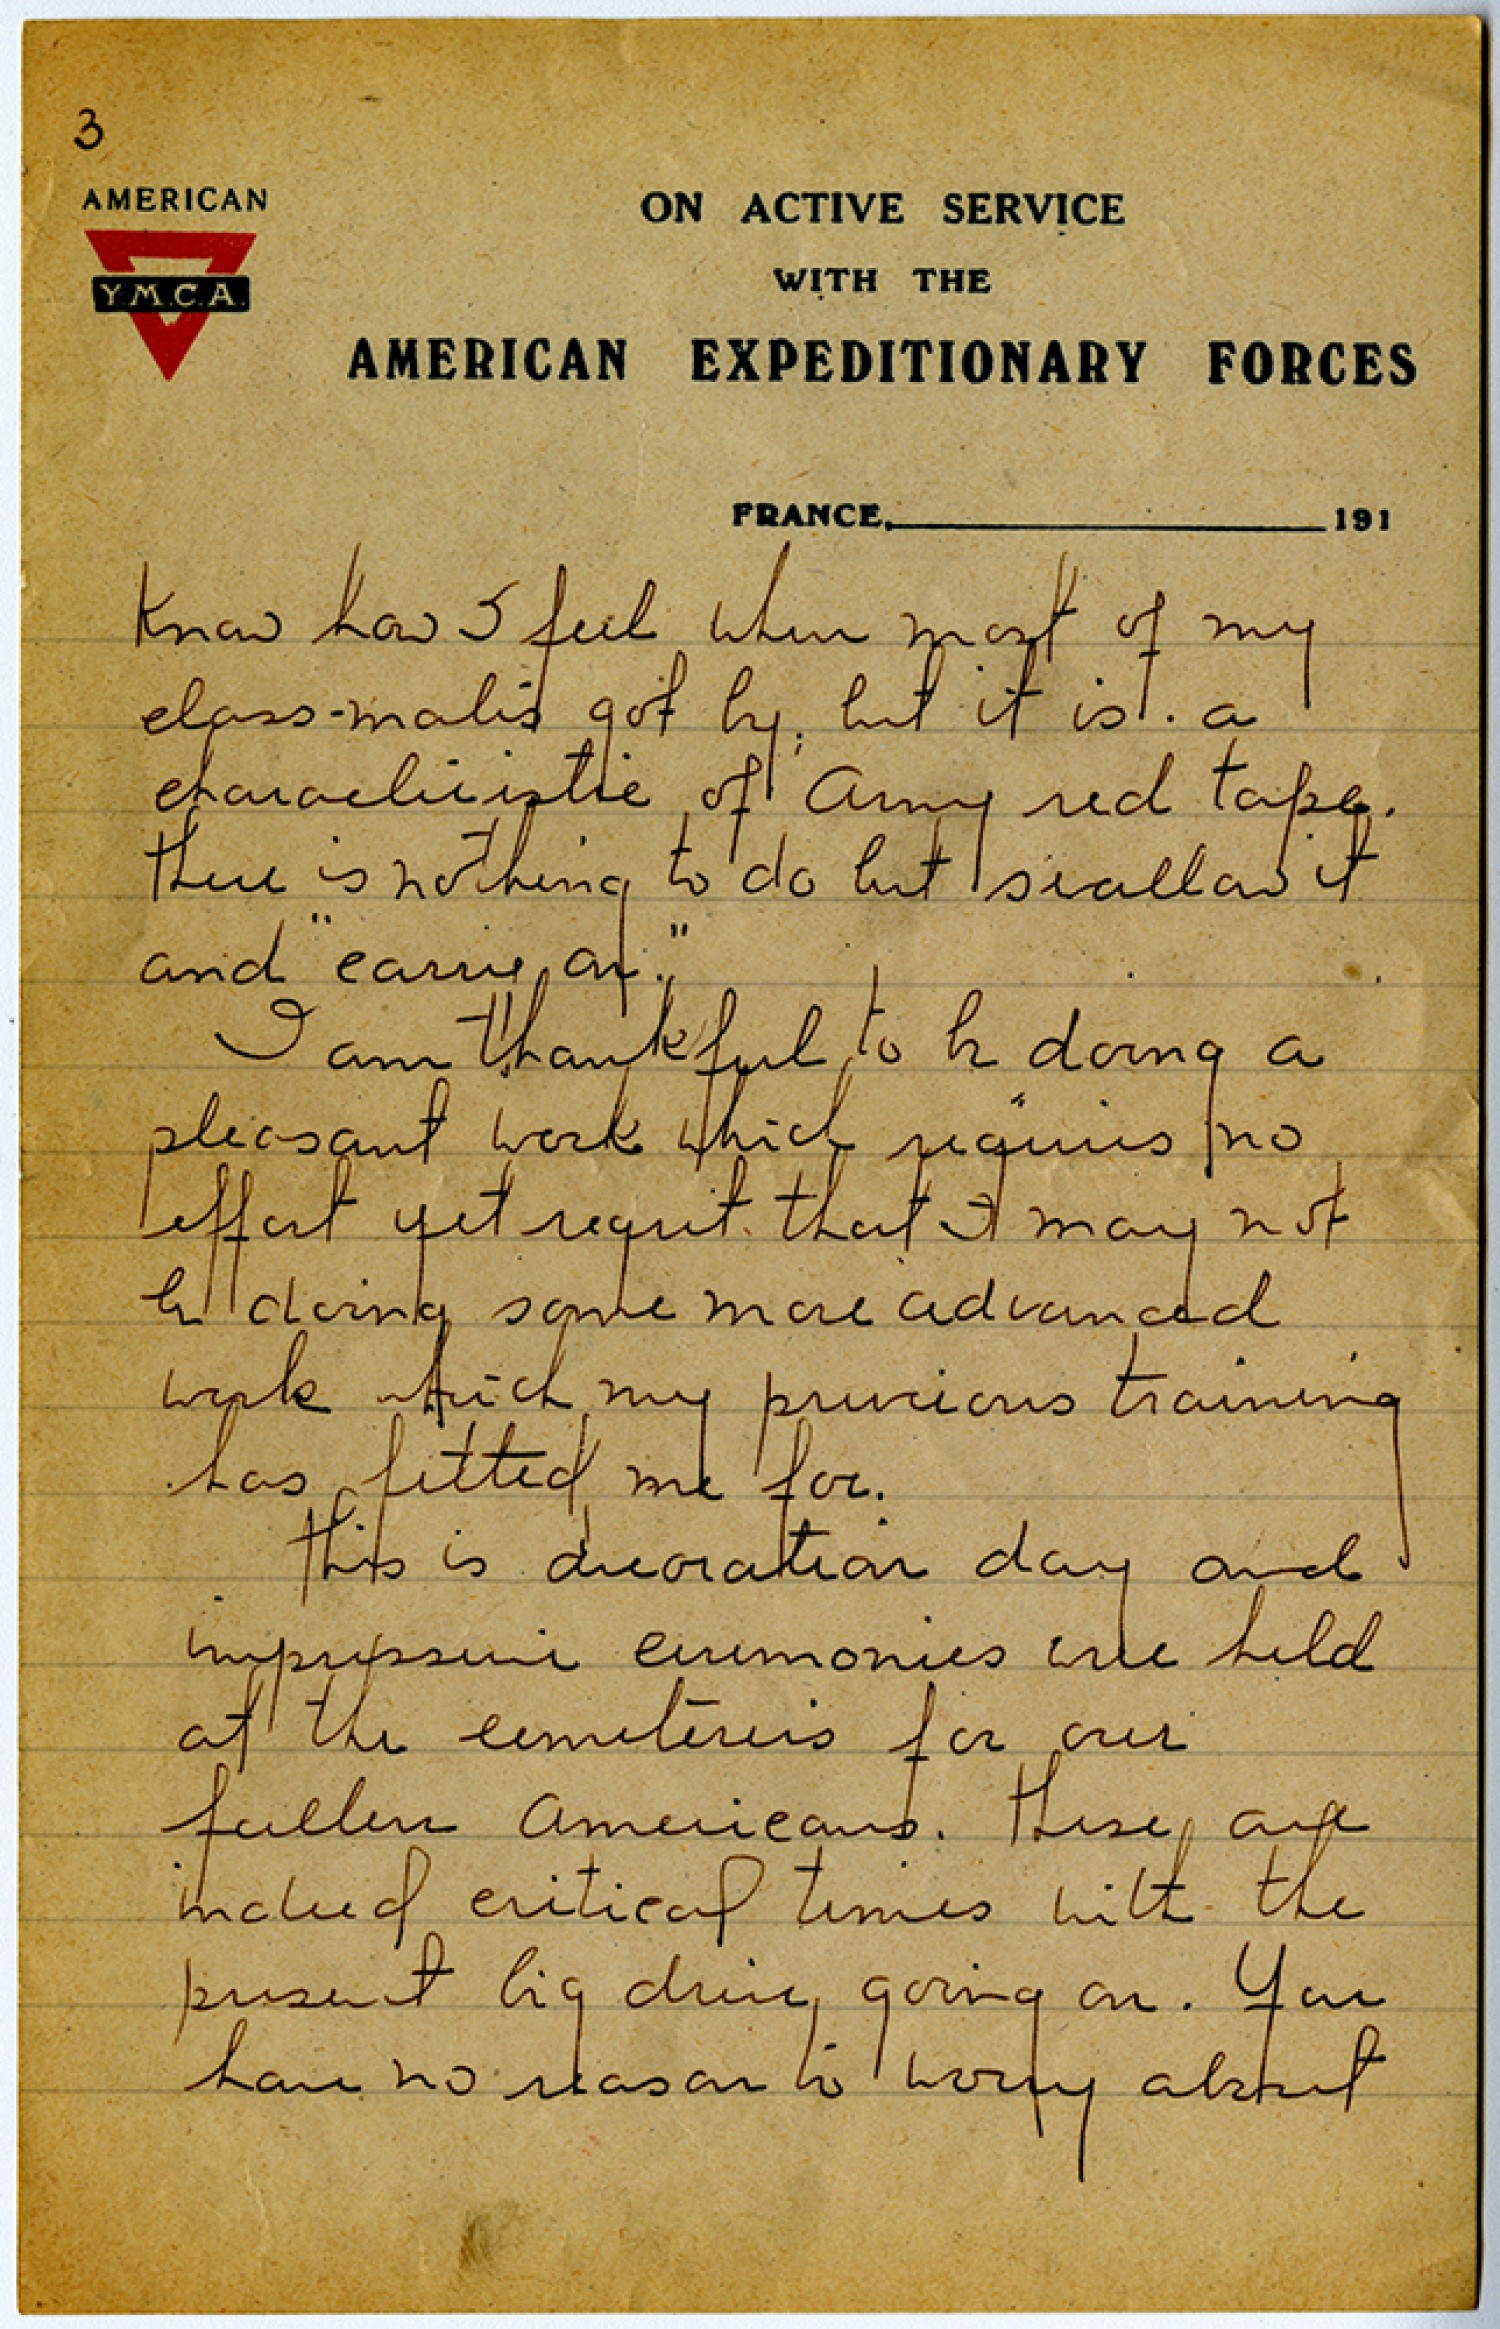 3
AMERICAN
Y.M.C.A.
ON ACTIVE SERVICE
WITH THE
AMERICAN EXPEDITIONARY FORCES
FRANCE, 191
Know how I feel when most of my
class-mates got by; but it is a
characteristic of Army red tape.
There is nothing to do but swallow it
and "carrie on."
I am thankful to be doing a
pleasant work which requires no
effort yet regret that I may not
be doing some more advanced
work which my previous training
has fitted me for.
This is decoration day and
impressive ceremonies were held
at the cemeteries for our
fallen Americans. These are
indeed critical times with the
present big drive going on. You
have no reason to worry about